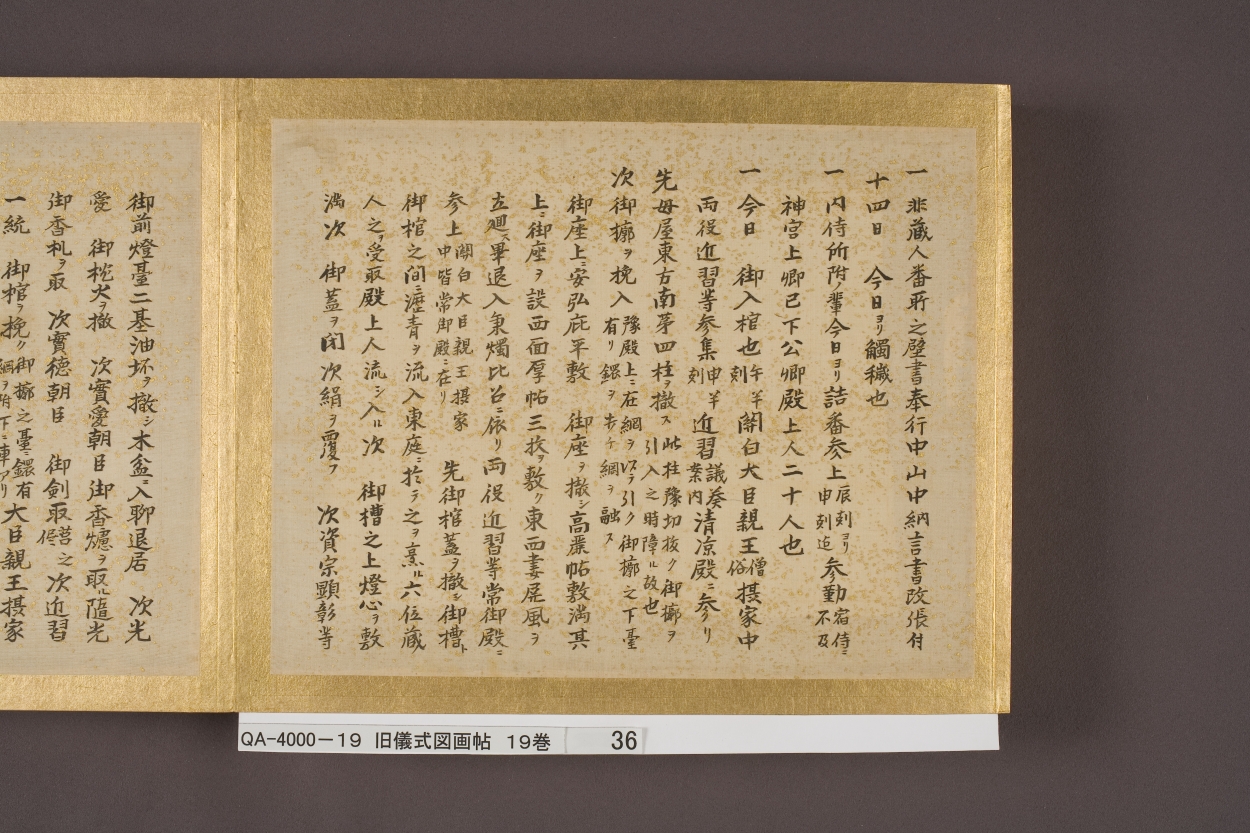 一 非蔵人番所之壁書奉行中山中納言書改張付
十四日 今日ヨリ觸穢也
一 内侍所附ノ輩今日ヨリ詰番参上 辰刻ヨリ 申刻迄 参勤 宿侍ニ 不及
神宮上卿已下公卿殿上人二十人也
一 今日 御入棺也 午半 刻 関白大臣親王 僧 俗 摂家中
両役近習等参集 申半 刻 近習 議奏 案内 清凉殿ニ参リ
先母屋東方南第四柱ヲ撤ス 此柱豫切抜ク御槨ヲ 引入之時障ル故也
次御槨ヲ挽入 豫殿上ニ在綱ヲ以テ引ク御槨之下臺 有リ鐶ヲ 歩ケ綱ヲ融ス
御座上ニ安弘庇平敷 御座ヲ撤シ高麗帖敷満其
上ニ御座ヲ設西面厚帖三枚ヲ敷ク東西妻屏風ヲ
立廻ス畢退入秉燭比召ニ依リ両役近習等常御殿ニ
参上 関白大臣親王摂家 中皆常御殿ニ在リ 先御棺蓋ヲ撤シ御槽ト
御棺之間ニ瀝青ヲ流入東庭ニ於テ之ヲ烹ル六位蔵
人之ヲ受取殿上人流シ入ル次 御槽之上燈心ヲ敷
満次 御蓋ヲ閉 次絹ヲ覆フ 次資宗顕彰等
御前燈臺二基油坏ヲ撤シ木盆ニ入聊退居 次光
愛 御枕火ヲ撤 次實愛朝臣御香爐ヲ取ル隨光
御香札ヲ取 次實徳朝臣 御劍取 之 次近習
一統 御棺ヲ挽ク 御槨之臺ニ鐶有 綱ヲ附下ニ車アリ 大臣親王摂家
QA-4000-19 旧儀式図画帖 19巻 36